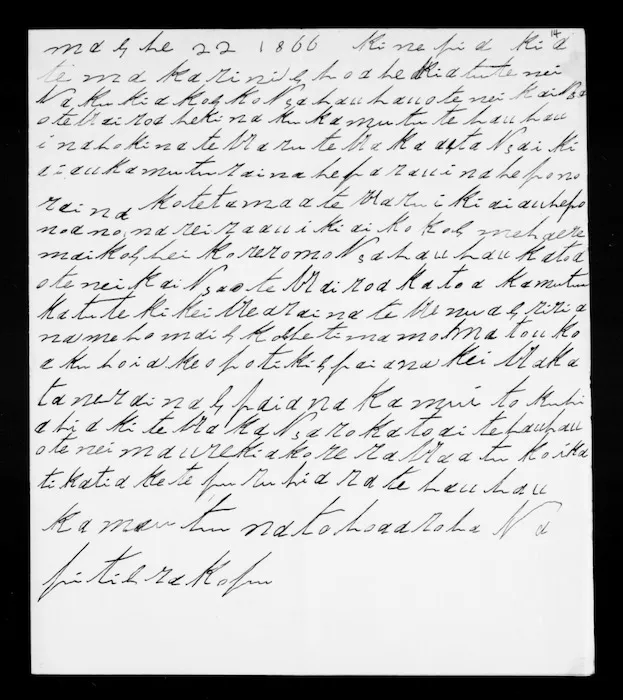 14
maehe 22 1866 ki nepia kia
te makarini e hoa he kiatu tenei
Naku kia koe ko Nga hauhau o tenei kainga
o te Wairoa heki naku ka mutu te hauhau
i na hoki na te Waru te Wakaata Ngai ki
aiau ka mutu raina he parau ina he pono
raina ko te tamaa te Waru i ki aiau hepo
noano nareira au i ki ai ko koe me haere
mai koe hei korero mo Nga hauhau katoa
o tenei kainga o te Wairoa katoa ka mutu
ka tuteki kei Wearaina te Wenua e riria
na me homai e koe he tima mo matou ko
aku hoia ke o potiki e pai ana kei Waka
tane raina e pai ana ka mui to kuhi
ahia ki te Waka Ngaro katoa i te hauhau
o tenei mawrekiakore ra Waatu koi ka
tikatia ke te puru hia ra te hauhau
ka mau tu na to hoa aroha Na
pitiera kopu